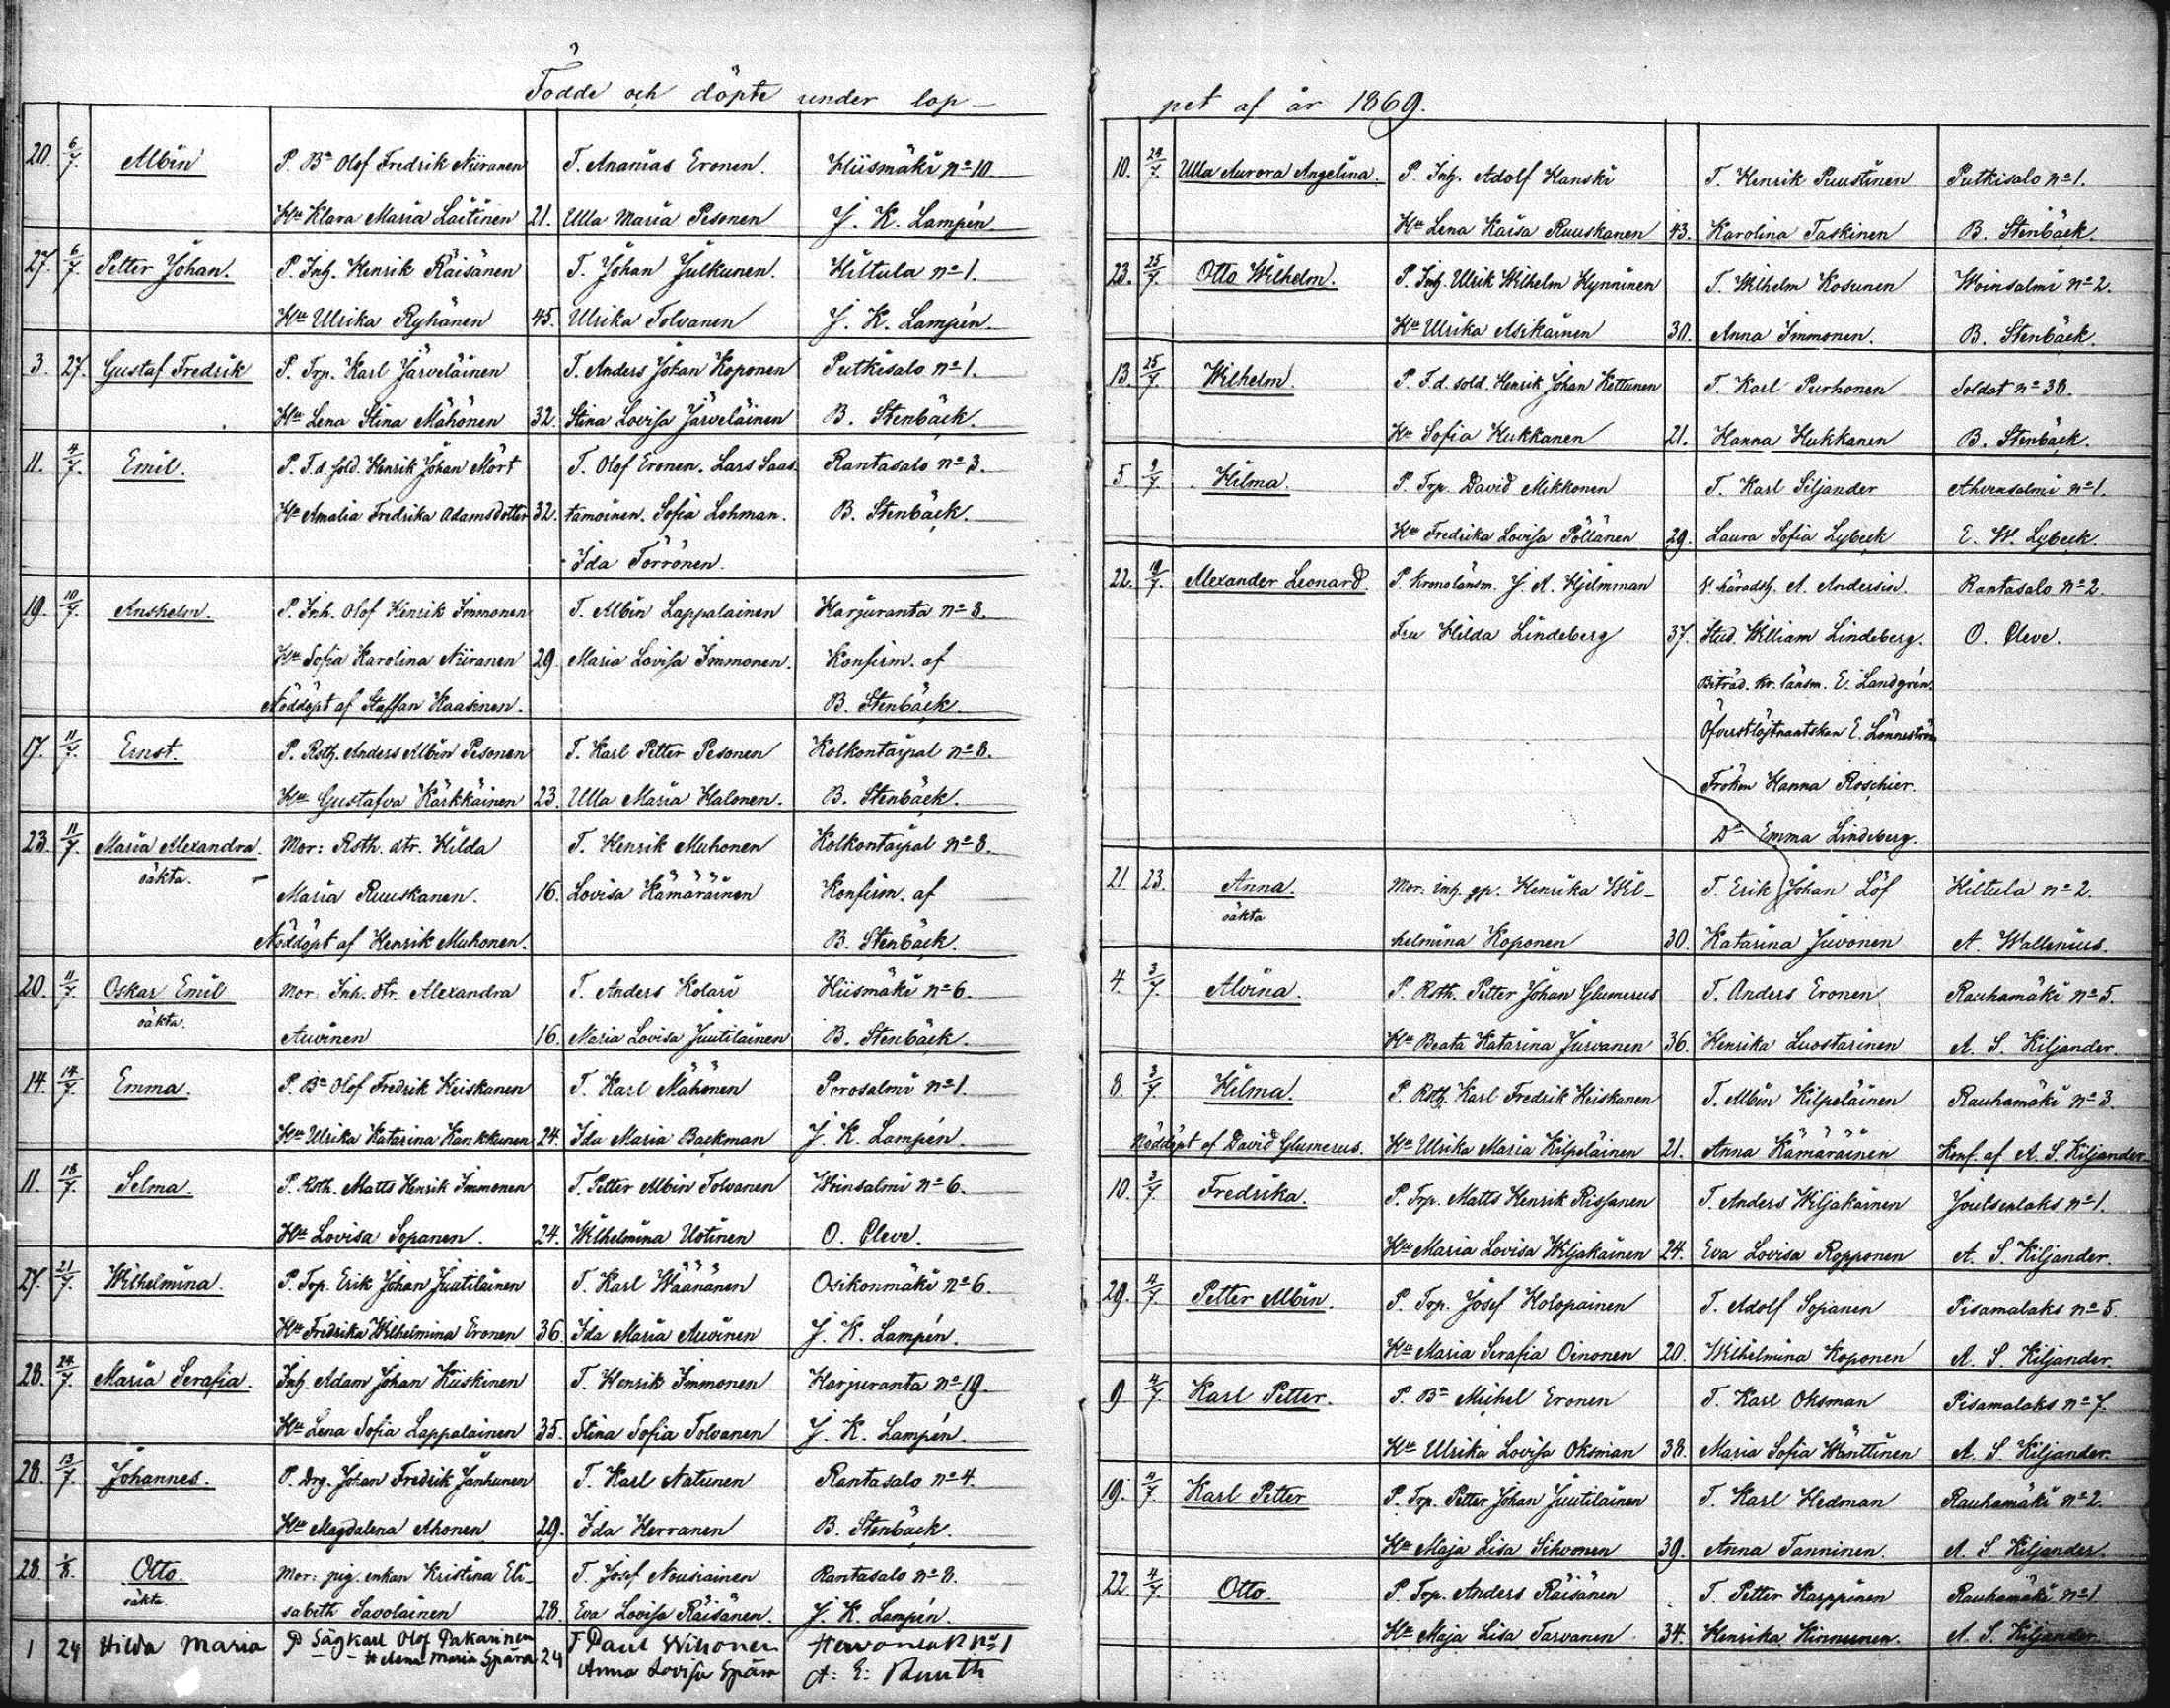 Födde och döpte under lop-
20. 6/7. Albin P. Bd Olof Fredrik Niiranen T. Ananias Eronen. Hiismäki no 10.
Hu Klara Maria Laitinen 21. Ulla Maria Pesonen J. K. Lampén.
27. 6/7. Petter Johan. P. Inh. Henrik Räisänen T. Johan Julkunen. Hiltula no 1.
Hu Ulrika Ryhänen 45. Ulrika Tolvanen J. K. Lampén.
3. 27. Gustaf Fredrik P. Trp. Karl Järveläinen T. Anders Johan Koponen Putkisalo no 1.
Hu Lena Stina Mähönen 32. Stina Lovisa Järveläinen B. Stenbäck.
11. 4/7. Emil. P. T.d. sold. Henrik Johan Mört T. Olof Eronen. Lars Saas- Rantasalo no 3.
Hu Amalia Fredrika Adamsdotter 32. tamoinen. Sofia Lohman. B. Stenbäck.
Ida Törrönen.
19. 10/7. Anshelm. P. Inh. Olof Henrik Immonen T. Albin Lappalainen Harjuranta no 8.
Hu Sofia Karolina Niiranen 29. Maria Lovisa Immonen. Konfirm. af
Nöddöpt af Staffan Haakinen. B. Stenbäck.
17. 11/7. Ernst. P. Rsth. Anders Albin Pesonen T. Karl Petter Pesonen Kolkontaipal no 8.
Hu Gustafva Kärkkäinen 23. Ulla Maria Halonen. B. Stenbäck.
23. 11/7. Maria Alexandra. Mor: Rsth. dtr. Hilda T. Henrik Muhonen Kolkontaipal no 8.
oäkta. Maria Ruuskanen. 16. Lovisa Kämäräinen Konfirm. af
Nöddöpt af Henrik Muhonen. B. Stenbäck.
20. 11/7. Oskar Emil Mor. Inh. dtr. Alexandra T. Anders Kolari Hiismäki no 6.
oäkta. Auvinen 16. Maria Lovisa Juutilainen B. Stenbäck.
14. 14/7. Emma. P. Bd Olof Fredrik Heiskanen T. Karl Mähönen Porosalmi no 1.
Hu Ulrika Katarina Kankkunen 24. Ida Maria Backman J. K. Lampén.
11. 18/7. Selma. P. Rsth. Matts Henrik Immonen T. Petter Albin Tolvanen Woinsalmi no 6.
Hu Lovisa Sopanen. 24. Wilhelmina Uotinen O. Cleve.
27. 21/7. Wilhelmina. P. Trp. Erik Johan Juutilainen T. Karl Wäänänen Osikonmäki no 6.
Hu Fredrika Wilhelmina Eronen 36. Ida Maria Auvinen J. K. Lampén.
28. 24/7. Maria Serafia. Inh. Adam Johan Kiiskinen T. Henrik Immonen Harjuranta no 19.
Hu Lena Sofia Lappalainen 35. Stina Sofia Tolvanen J. K. Lampén.
28. 13/7. Johannes. P. Drg. Johan Fredrik Janhunen T. Karl Natunen Rantasalo no 4.
Hu Magdalena Ahonen 29. Ida Herranen B. Stenbäck.
28. 1/8. Otto. Mor: pig. enkan Kristina Eli- T. Josef Nousiainen Rantasalo no 8.
oäkta sabeth Savolainen 28. Eva Lovisa Räisänen. J. K. Lampén.
1 24 Hilda Maria P Säg Karl Olof Pakarinen F Paul Wihonen no 1
H Anna Maria Spåra 24 Anna Lovisa Spåra A: E:
pet af år 1869.
10. 24/7. Ulla Aurora Angelina. P. Inh. Adolf Hanski T. Henrik Puustinen Putkisalo no 1.
Hu Lena Kaisa Ruuskanen 43. Karolina Taskinen B. Stenbäck.
23. 25/7. Otto Wilhelm. P. Inh. Ulrik Wilhelm Hynninen T. Wilhelm Kosunen Woinsalmi no 2.
Hu Ulrika Asikainen 30. Anna Immonen. B. Stenbäck.
13. 25/7. Wilhelm. P. T.d. sold. Henrik Johan Kettunen T. Karl Purhonen Soldat no 38.
Hu Sofia Hukkanen 21. Hanna Hukkanen B. Stenbäck.
5. 9/7. Hilma. P. Trp. David Mikkonen T. Karl Siljander Ahvensalmi no 1.
Hu Fredrika Lovisa Pöllänen 29. Laura Sofia Lybeck E. W. Lybeck.
22. 19/7. Alexander Leonard. P. Kronolänsm. J. A. Hjelmman V. häradsh. A. Andersin. Rantasalo no 2.
Fru Hilda Lindeberg 37. Stud. William Lindeberg. O. Cleve.
Biträd. kr. länsm. E. Landgrén.
Öfverstlöjtnantskan E. Lönneström
Fröken Hanna Roschier.
Do Emma Lindeberg.
21. 23. Anna. Mor: inh. gp. Henrika Wil- T. Erik Johan Löf Hiltula no 2.
oäkta helmina Koponen 30. Katarina Juvonen A. Wallenius.
4. 3/7. Alvina. P. Rsth. Petter Johan Glumerus T. Anders Eronen Rauhamäki no 5.
Hu Beata Katarina Jurvanen 36. Henrika Luostarinen A. S. Kiljander.
8. 3/7. Hilma. P. Rsth. Karl Fredrik Heiskanen T. Albin Kilpeläinen Rauhamäki no 3.
Nöddöpt af David Glumerus. Hu Ulrika Maria Kilpeläinen 21. Anna Kämäräinen Konf. af A. S. Kiljander
10. 3/7. Fredrika. P. Trp. Matts Henrik Rissanen T. Anders Wiljakainen Joutsenlaks no 1.
Hu Maria Lovisa Wiljakainen 24. Eva Lovisa Ropponen A. S. Kiljander.
29. 4/7. Petter Albin. P. Trp. Josef Holopainen T. Adolf Sopanen Pisamalaks no 5.
Hu Maria Serafia Oinonen 20. Wilhelmina Koponen A. S. Kiljander.
9. 4/7. Karl Petter. P. Bd Michel Eronen T. Karl Oksman Pisamalaks no 7.
Hu Ulrika Lovisa Oksman 38. Maria Sofia Wänttinen A. S. Kiljander.
19. 4/7. Karl Petter P. Trp. Petter Johan Juutilainen T. Karl Hedman Rauhamäki no 2.
Hu Maja Lisa Sihvonen 39. Anna Tanninen. A. S. Kiljander.
22. 4/7. Otto. P. Trp. Anders Räisänen T. Petter Karppinen Rauhamäki no 1
Hu Maja Lisa Tarvanen 34. Henrika Kinnunen. A. S. Kiljander.